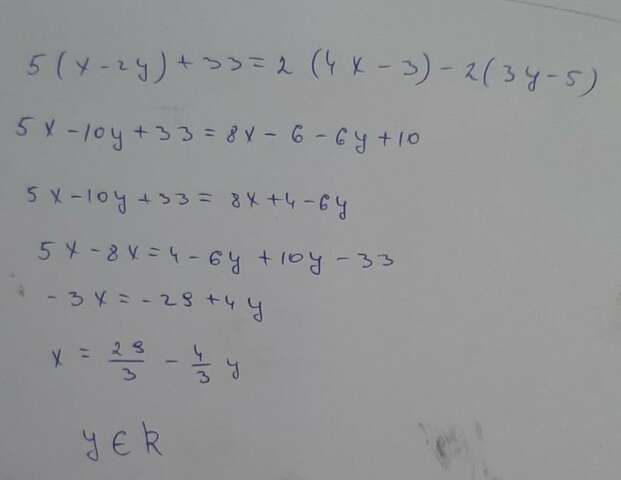 5(x-2y)+33=2(4x-3)-2(3y-5)
5x-10y+33=8x-6-6y+10
5x-10y+33=8x+4-6y
5x-8x=4-6y+10y-33
-3x=-29+4y
x=29/3-4/3y
y∈R